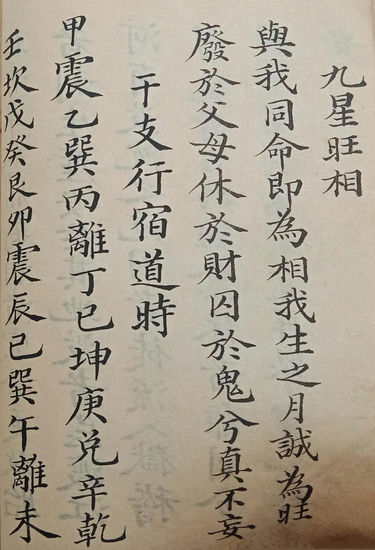 九星旺相
與我同命即為相我生之月誠為旺
廢於父母休於財囚於鬼兮真不妄
干支行宿道時
甲震乙巽丙離丁巳坤庚兌辛乾
壬坎戊癸艮卯震辰巳巽午離未